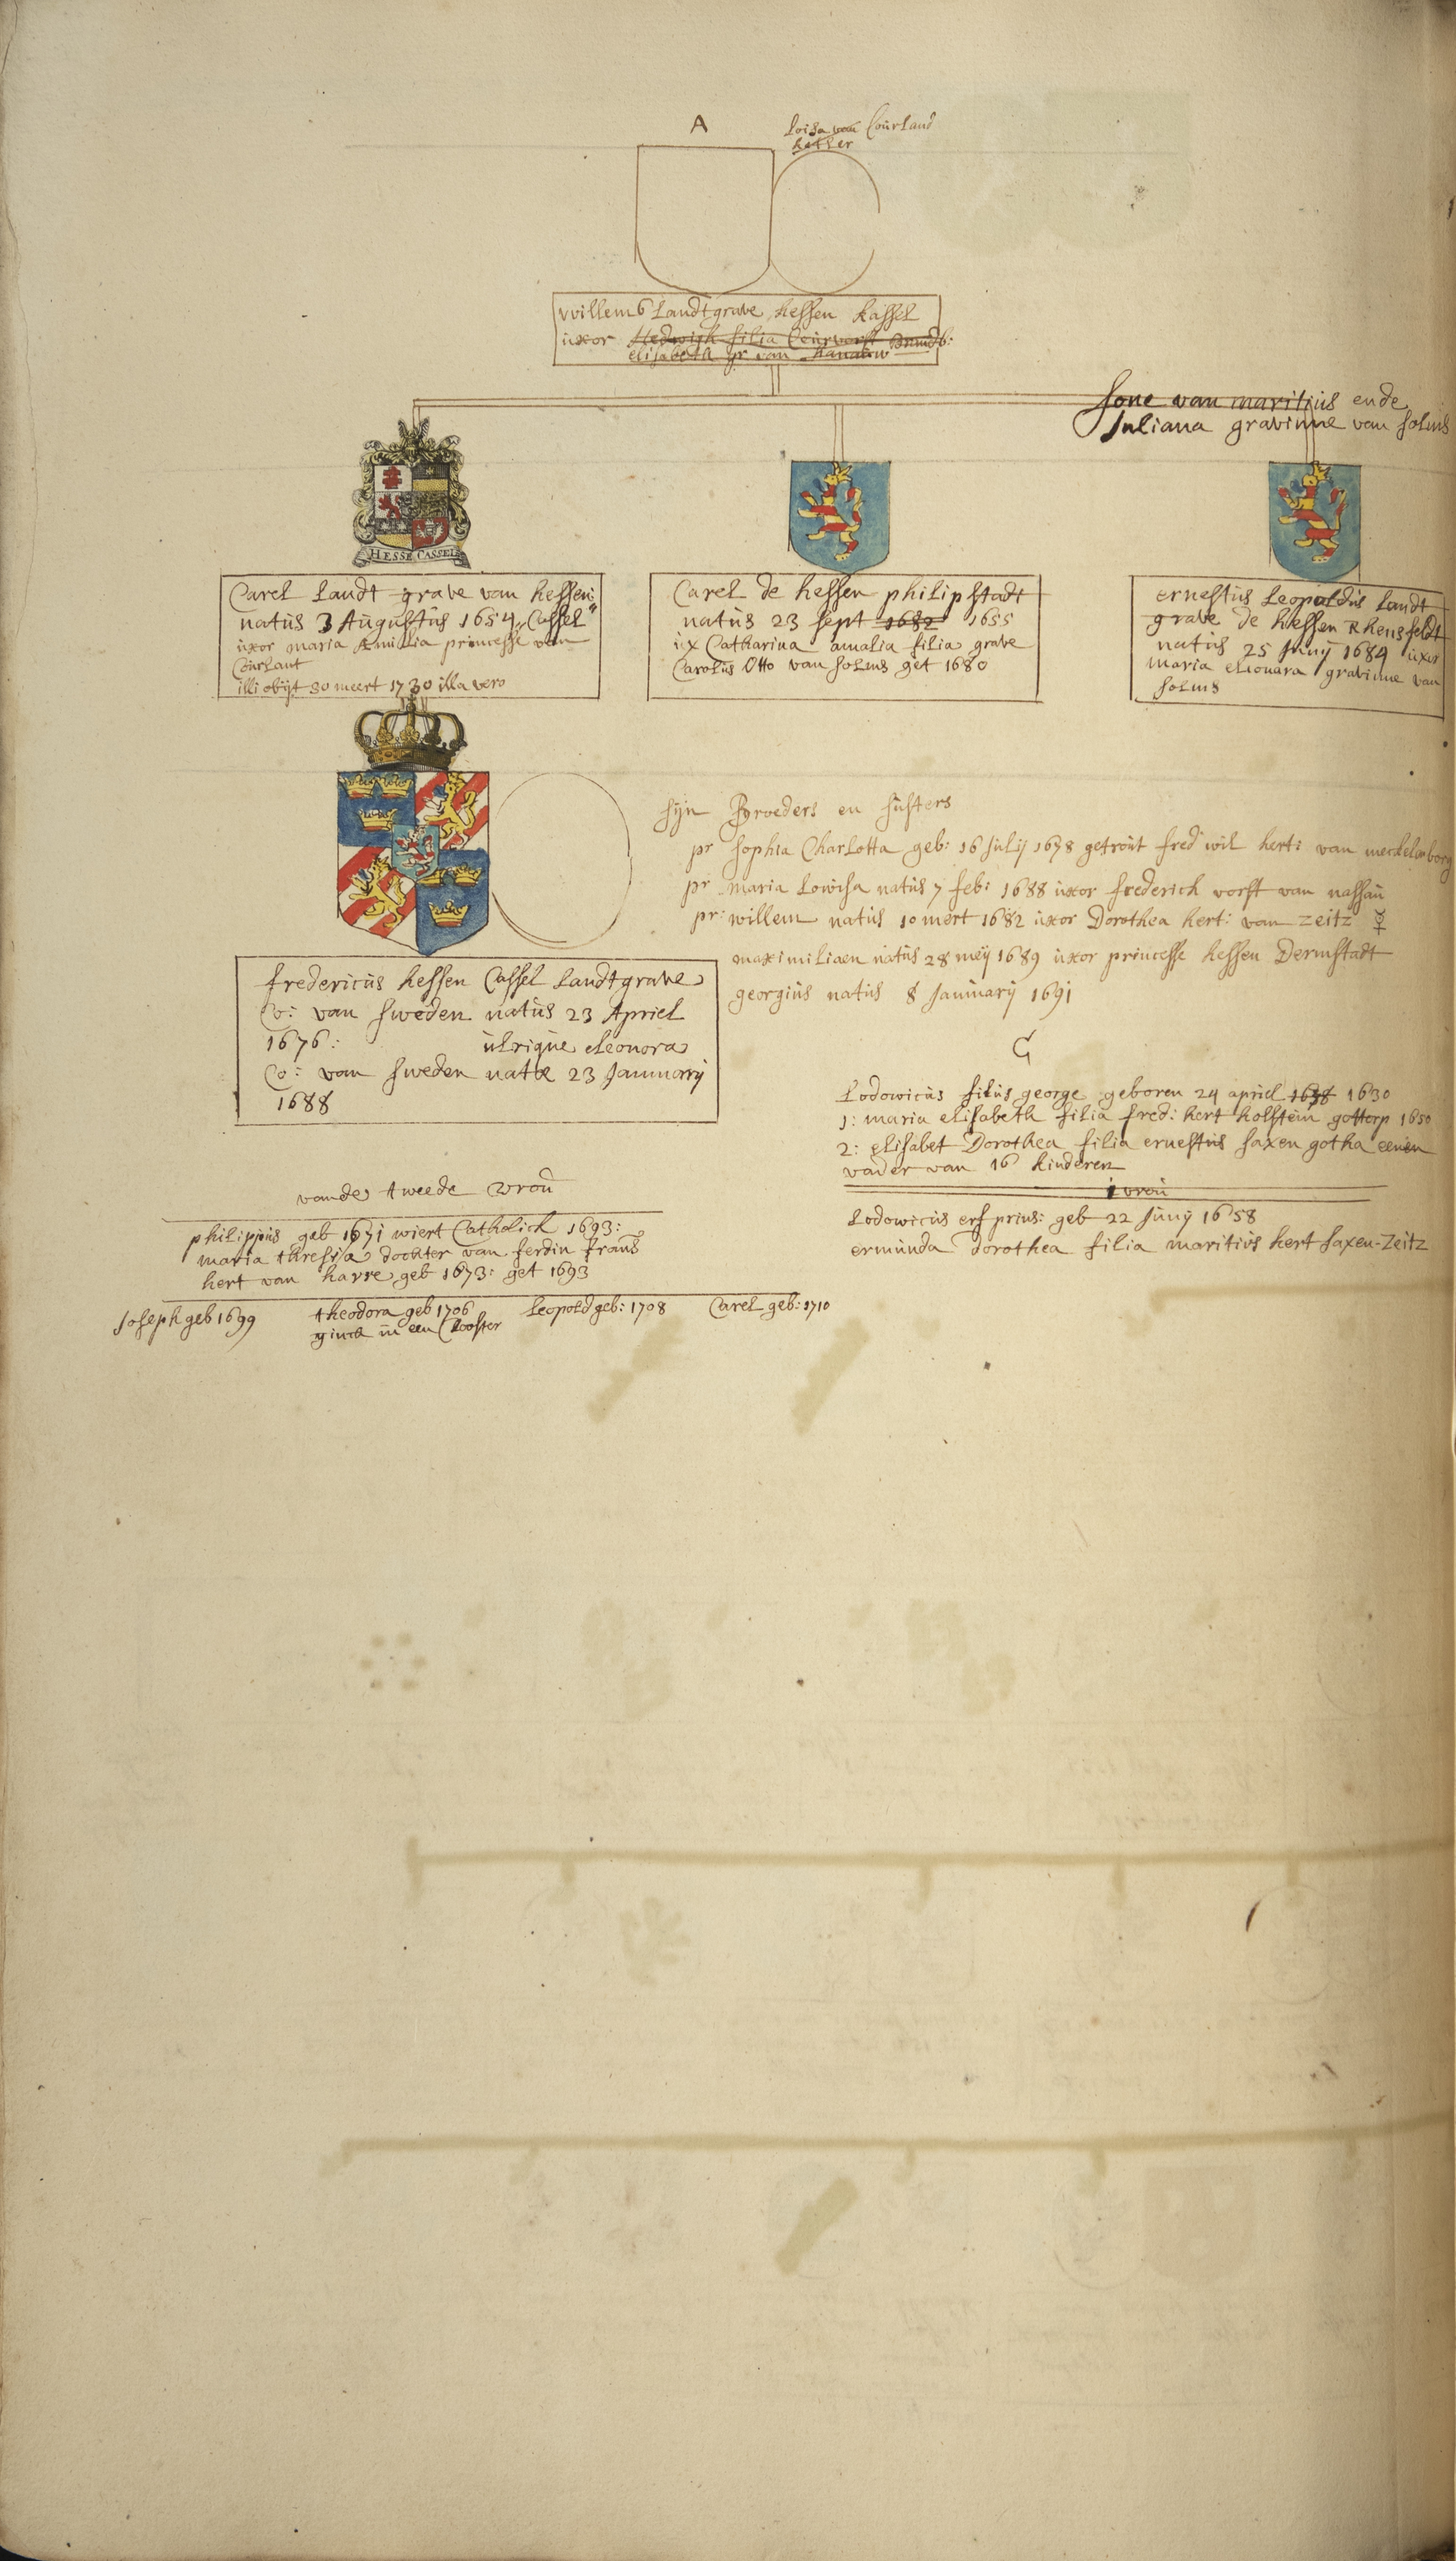 A
Loisa van Courland
ketler
willem 6 Landtgrave hessen kassel
uxor Hedwigh filia Ceurvorst Brandb:
elisabeth gr van hanauw
sone van maritius ende
Juliana gravinne van solms
HESSE CASSEL
Carel Landt grave van hessen
natus 3 Augustus 1654 Cassel"
uxor maria Æmilia princesse van
Courlant
illi obyt 30 meert 1730 illa vero
Carel de hessen philipstadt
natus 23 sept 1682 1655
ux Catharina amalia filia grave
Carolus Otto van solms get 1680
ernestus Leopoldus Landt
grave de hessen Rhensfeldt
natus 25 Juny 1684 uxor
maria eleonara gravinne van
solms
sijn Broeders en susters
pr sophia Charlotta geb: 16 July 1678 getrout fred wil hert: van meckelenborg
pr maria Lowisa natus 7 feb: 1688 uxor frederich vorst van nassau
pr: willem natus 10 mert 1682 uxor Dorothea hert: van zeitz ☿
maximiliaen natus 28 meij 1689 uxor princesse hessen Dermstadt
georgius natus 8 January 1691
fredericus hessen Cassel Landtgrave
Co: van sweden natus 23 Apriel
1676: ulrique eleonora
Co: van sweden natæ 23 January
1688
G
Lodowicus filius george geboren 24 apriel 1638 1630
1: maria elisabeth filia fred: hert holstein gottorp 1650
2: elisabet Dorothea filia ernestus saxen gotha eenen
vader van 16 kinderen
1 vrou
Lodowicus erf prins: geb 22 Juny 1658
ermunda Dorothea filia maritius hert saxen-Zeitz
vande tweede vrou
philippus geb 1671 wiert Catholick 1693:
maria thresia dochter van ferdin frans
hert van havre geb 1673: get 1693
Joseph geb 1699 theodora geb 1706 Leopold geb: 1708 Carel geb: 1710
ginck in een Clooster